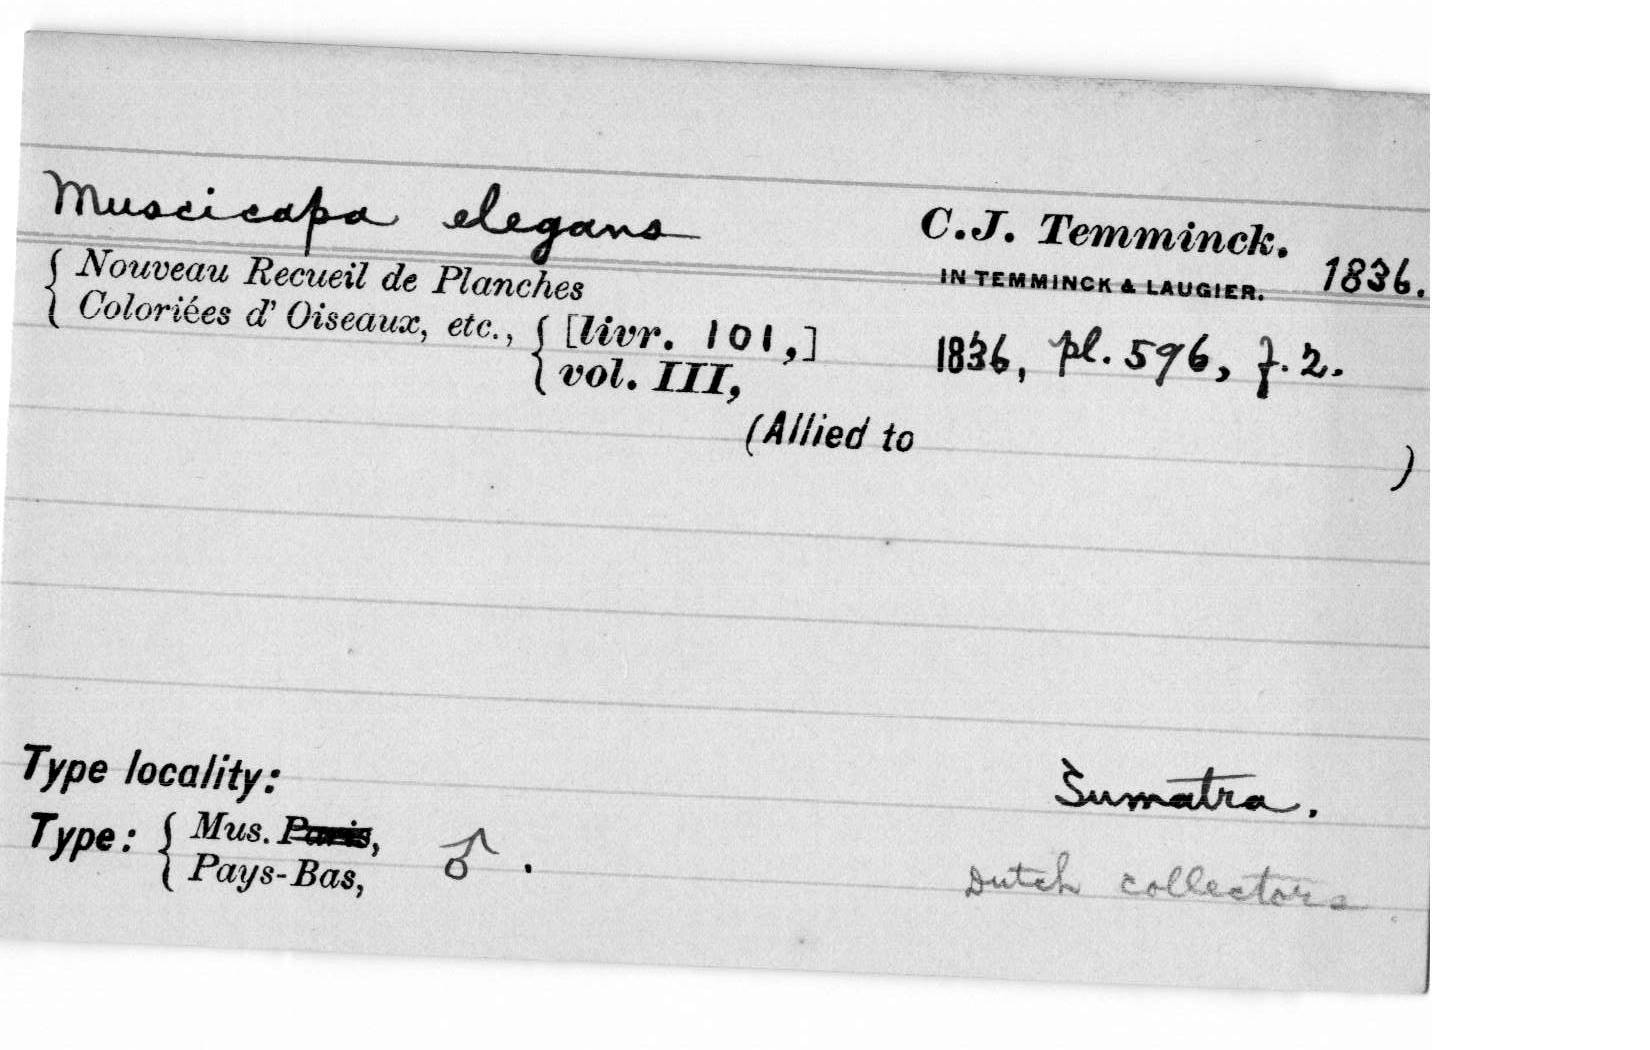 Muscicapa elegans C.J. Temminck.
IN TEMMINCK & LAUGIER. 1836.
{ Nouveau Recueil de Planches
Coloriées d' Oiseaux, etc., { [livr. 101,] 1836, pl. 596, f. 2.
vol. III,
(Allied to )
Type locality: Sumatra.
Type: { Mus. Paris, ♂.
Pays-Bas, Dutch collectors.